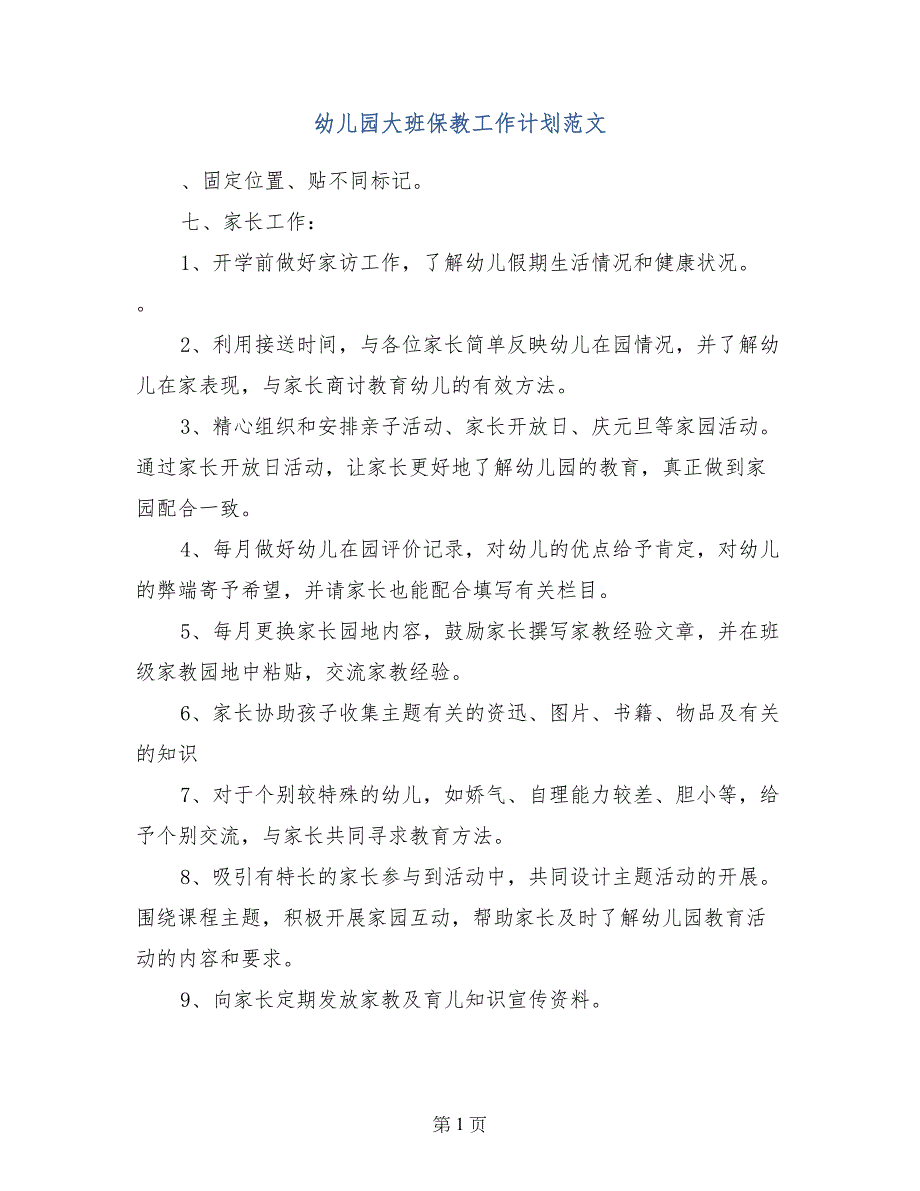 幼儿园大班保教工作计划范文
、固定位置、贴不同标记。
七、家长工作：
1、开学前做好家访工作，了解幼儿假期生活情况和健康状况。
。
2、利用接送时间，与各位家长简单反映幼儿在园情况，并了解幼
儿在家表现，与家长商讨教育幼儿的有效方法。
3、精心组织和安排亲子活动、家长开放日、庆元旦等家园活动。
通过家长开放日活动，让家长更好地了解幼儿园的教育，真正做到家
园配合一致。
4、每月做好幼儿在园评价记录，对幼儿的优点给予肯定，对幼儿
的弊端寄予希望，并请家长也能配合填写有关栏目。
5、每月更换家长园地内容，鼓励家长撰写家教经验文章，并在班
级家教园地中粘贴，交流家教经验。
6、家长协助孩子收集主题有关的资迅、图片、书籍、物品及有关
的知识
7、对于个别较特殊的幼儿，如娇气、自理能力较差、胆小等，给
予个别交流，与家长共同寻求教育方法。
8、吸引有特长的家长参与到活动中，共同设计主题活动的开展。
围绕课程主题，积极开展家园互动，帮助家长及时了解幼儿园教育活
动的内容和要求。
9、向家长定期发放家教及育儿知识宣传资料。
第 1 页